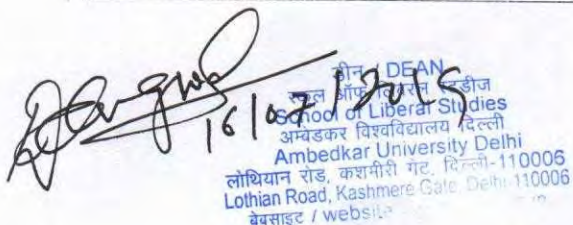 16/07/2015
डीन / DEAN
स्कूल ऑफ लिबरल स्टडीज
School of Liberal Studies
अम्बेडकर विश्वविद्यालय दिल्ली
Ambedkar University Delhi
लोथियान रोड, कशमीरी गेट, दिल्ली-110006
Lothian Road, Kashmere Gate, Delhi-110006
बेबसाइट / website